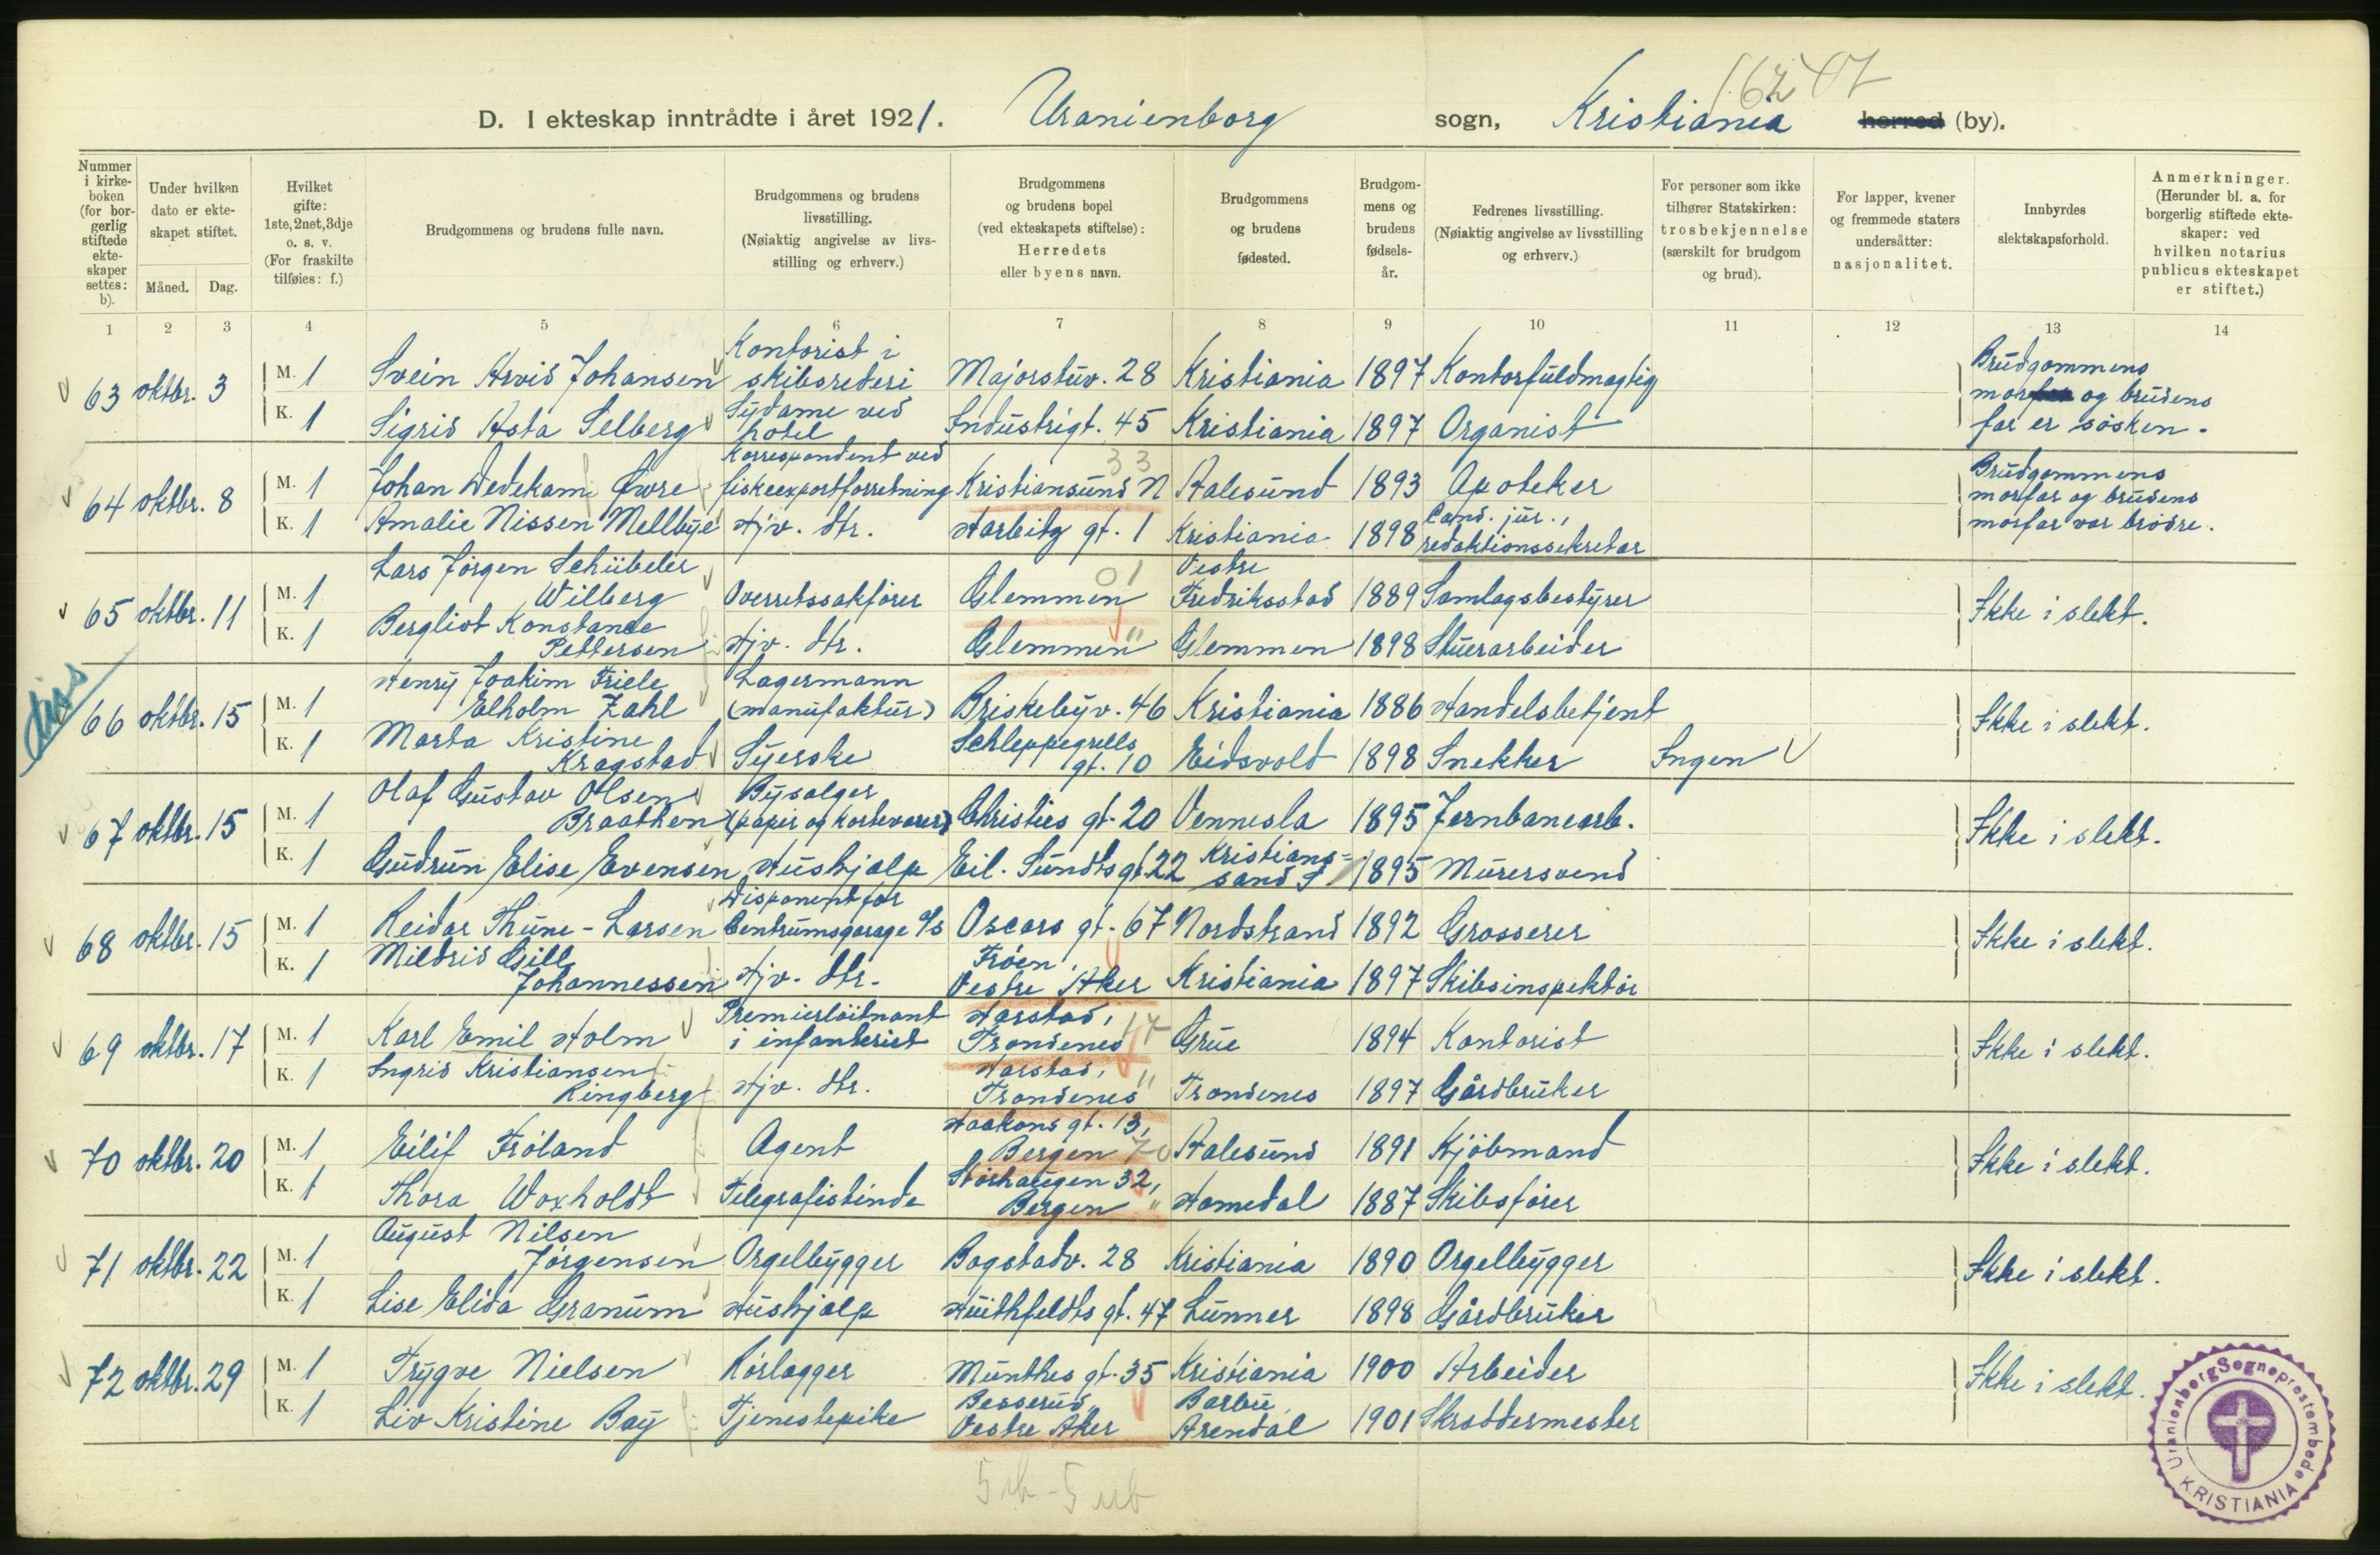 16247
D. I ekteskap inntrådte i året 1921. Uranienborg sogn, Kristiania herred (by).
Nummer i kirke-boken (for bor-gerlig stiftede ekte-skaper settes: b).
Under hvilken dato er ekte-skapet stiftet.
Måned. Dag.
Hvilket gifte: 1ste, 2net, 3dje o. s. v. (For fraskilte tilføies: f.)
Brudgommens og brudens fulle navn.
Brudgommens og brudens livsstilling. (Nøiaktig angivelse av livs-stilling og erhverv.)
Brudgommens og brudens bopel (ved ekteskapets stiftelse): Herredets eller byens navn.
Brudgommens og brudens fødested.
Brudgom-mens og brudens fødsels-år.
Fedrenes livsstilling. (Nøiaktig angivelse av livsstilling og erhverv.)
For personer som ikke tilhører Statskirken: trosbekjennelse (særskilt for brudgom og brud).
For lapper, kvener og fremmede staters undersåtter: nasjonalitet.
Innbyrdes slektskapsforhold.
Anmerkninger. (Herunder bl. a. for borgerlig stiftede ekte-skaper: ved hvilken notarius publicus ekteskapet er stiftet.)
1 2 3 4 5 6 7 8 9 10 11 12 13 14
63 oktbr. 3 M. 1 Svein Arvid Johansen Kontorist i skibsrederi Majorstuv. 28 Kristiania 1897 Kontorfuldmægtig
K. 1 Sigrid Asta Selberg Sydame ved hotel Industrigt. 45 Kristiania 1897 Organist
Brudgommens mor og brudens far er søsken.
64 oktbr. 8 M. 1 Johan Dedekam Øwre Korrespondent ved fiskeexportforretning Kristiansund N 33 Aalesund 1893 Apoteker
K. 1 Amalie Nissen Mellbye Hjv. dtr. Harbitz gt. 1 Kristiania 1898 Cand. jur., redaktionssekretær
Brudgommens morfar og brudens morfar var brødre.
65 oktbr. 11 M. 1 Lars Jörgen Schübeler Wilberg Overretssakfører Glemmen 01 Vestre Fredriksstad 1889 Samlagsbestyrer
K. 1 Bergliot Konstance Pettersen Hjv. dtr. Glemmen " Glemmen 1898 Stuerarbeider
Ikke i slekt.
diss
66 oktbr. 15 M. 1 Henry Joakim Friele Elholm Zahl Lagermann (manufaktur) Briskebyv. 46 Kristiania 1886 Handelsbetjent
K. 1 Marta Kristine Kragstad Syerske Schleppegrells gt. 10 Eidsvold 1898 Snekker Ingen
Ikke i slekt.
67 oktbr. 15 M. 1 Olaf Gustav Olsen Braathen Bysælger (papir og kortevarer) Christies gt. 20 Vennesla 1895 Jernbanearb.
K. 1 Gudrun Elise Evensen Hushjælp Eil. Sundts gt. 22 Kristians=sand S 1895 Murersvend
Ikke i slekt.
68 oktbr. 15 M. 1 Reidar Thune-Larsen Disponent for Centrumsgarage A/S Oscars gt. 67 Nordstrand 1892 Grosserer
K. 1 Mildrid Gill Johannessen Hjv. dtr. Frøen, Vestre Aker Kristiania 1897 Skibsinspektør
Ikke i slekt.
69 oktbr. 17 M. 1 Karl Emil Holm Premierløitnant i infanteriet Harstad, Trondenes 17 Grue 1894 Kontorist
K. 1 Ingrid Kristiansen Ringberg Hjv. dtr. Harstad, Trondenes " Trondenes 1897 Gårdbruker
Ikke i slekt.
70 oktbr. 20 M. 1 Eilif Frøland Agent Haakons gt. 13, Bergen 70 Aalesund 1891 Kjøbmand
K. 1 Thora Woxholdt Telegrafistinde Storhaugen 32, Bergen " Homedal 1887 Skibsfører
Ikke i slekt.
71 oktbr. 22 M. 1 August Nilsen Jørgensen Orgelbygger Bogstadv. 28 Kristiania 1890 Orgelbygger
K. 1 Lise Elida Granum Hushjælp Huithfeldts gt. 47 Lunner 1898 Gårdbruker
Ikke i slekt.
72 oktbr. 29 M. 1 Trygve Nielsen Rørlægger Munthes gt. 35 Kristiania 1900 Arbeider
K. 1 Liv Kristine Bay Tjenestepike Besserud, Vestre Aker Barbu, Arendal 1901 Skræddermester
Ikke i slekt.
Uranienborg Sogneprestembede KRISTIANIA